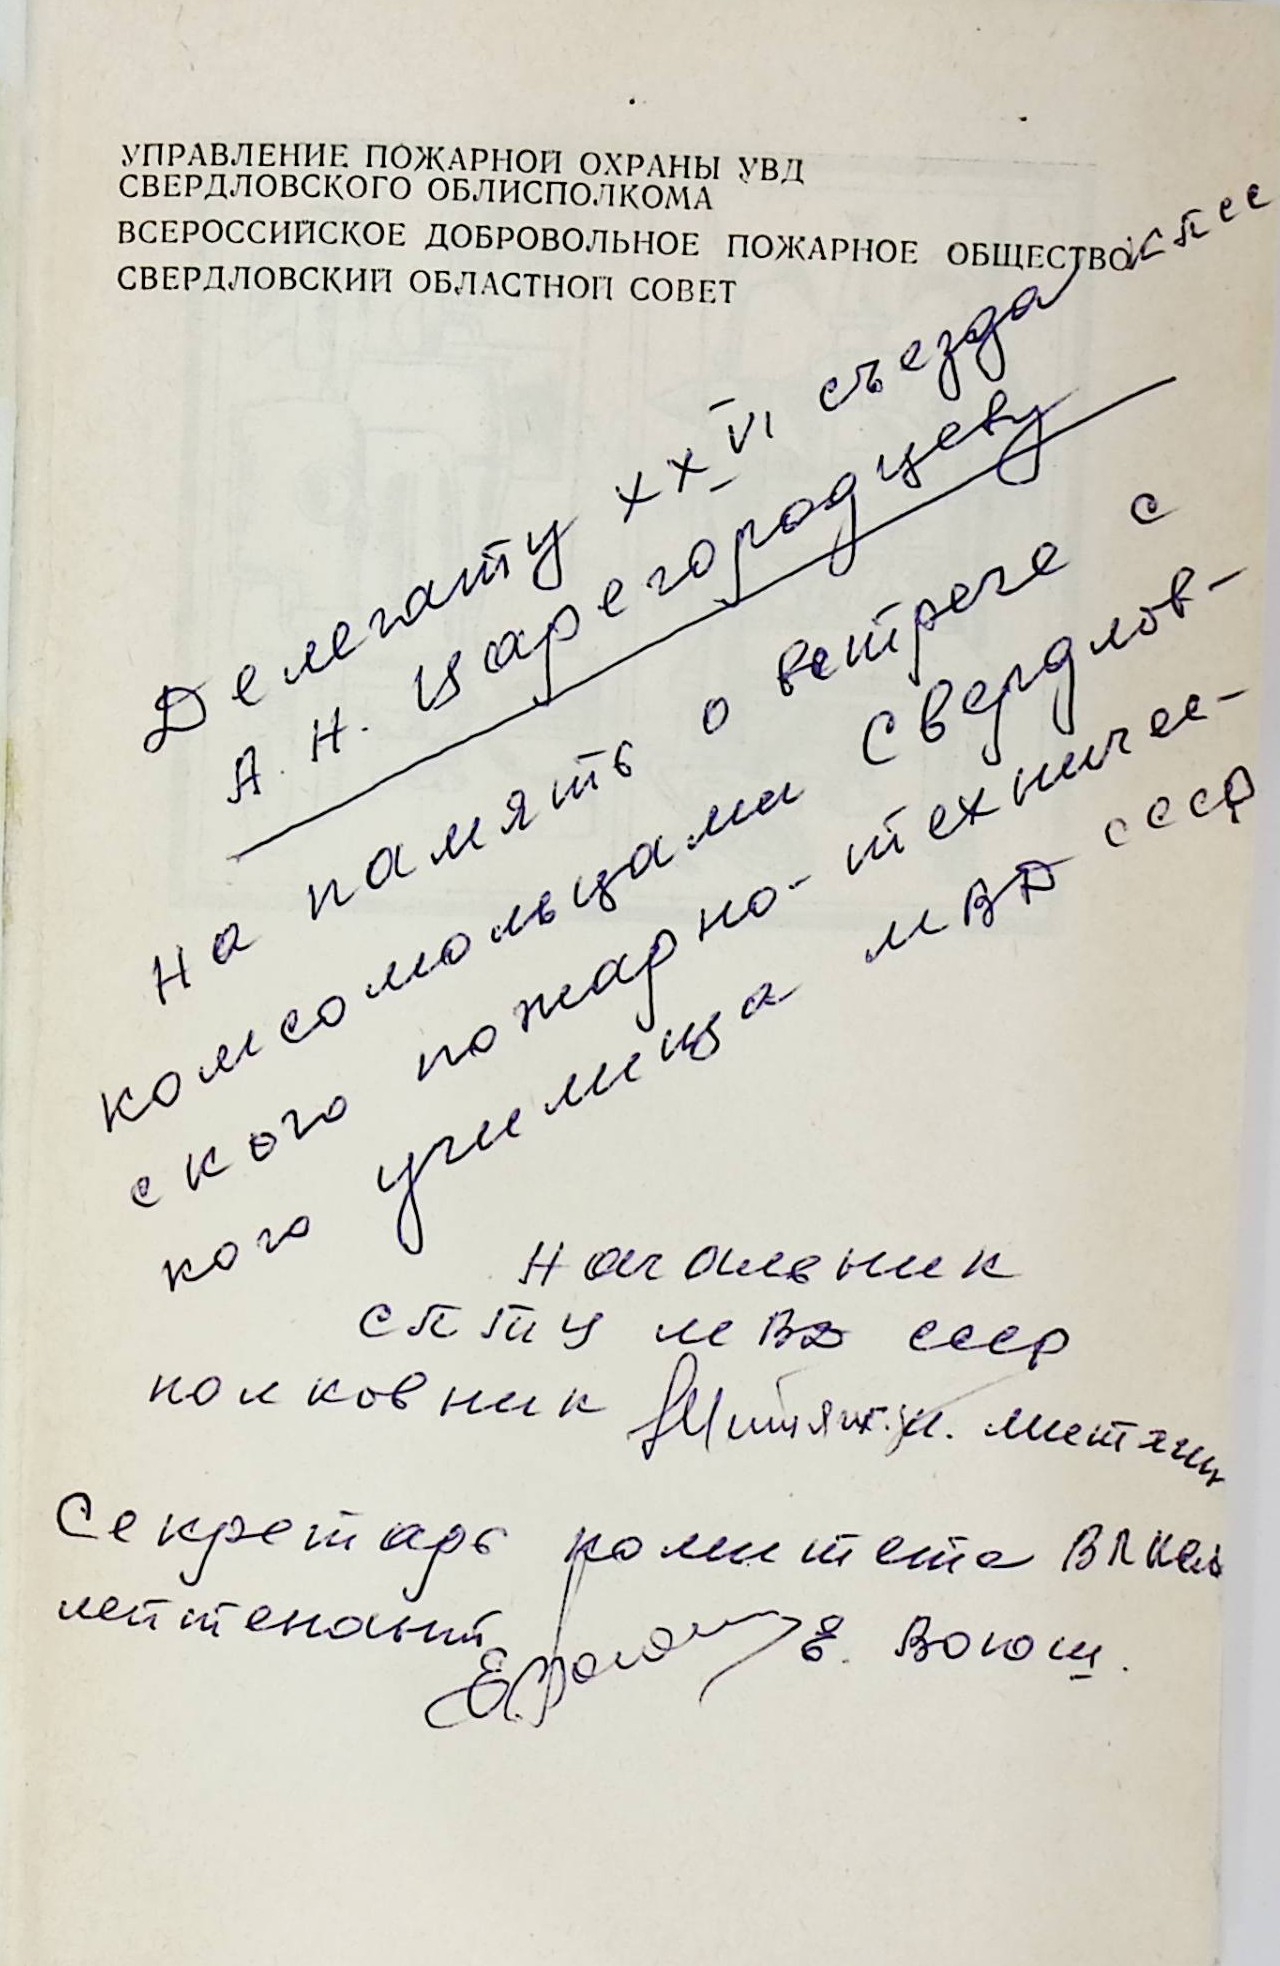 УПРАВЛЕНИЕ ПОЖАРНОЙ ОХРАНЫ УВД
СВЕРДЛОВСКОГО ОБЛИСПОЛКОМА
ВСЕРОССИЙСКОЕ ДОБРОВОЛЬНОЕ ПОЖАРНОЕ ОБЩЕСТВО
СВЕРДЛОВСКИЙ ОБЛАСТНОЙ СОВЕТ
Делегату XXVI съезда КПСС
А. Н. Царегородцеву
На память о встрече с
комсомольцами Свердлов-
ского пожарно-техничес-
кого училища МВД СССР
Начальник
СПТУ МВД СССР
полковник И.
Секретарь комитета ВЛКСМ
лейтенант Е.